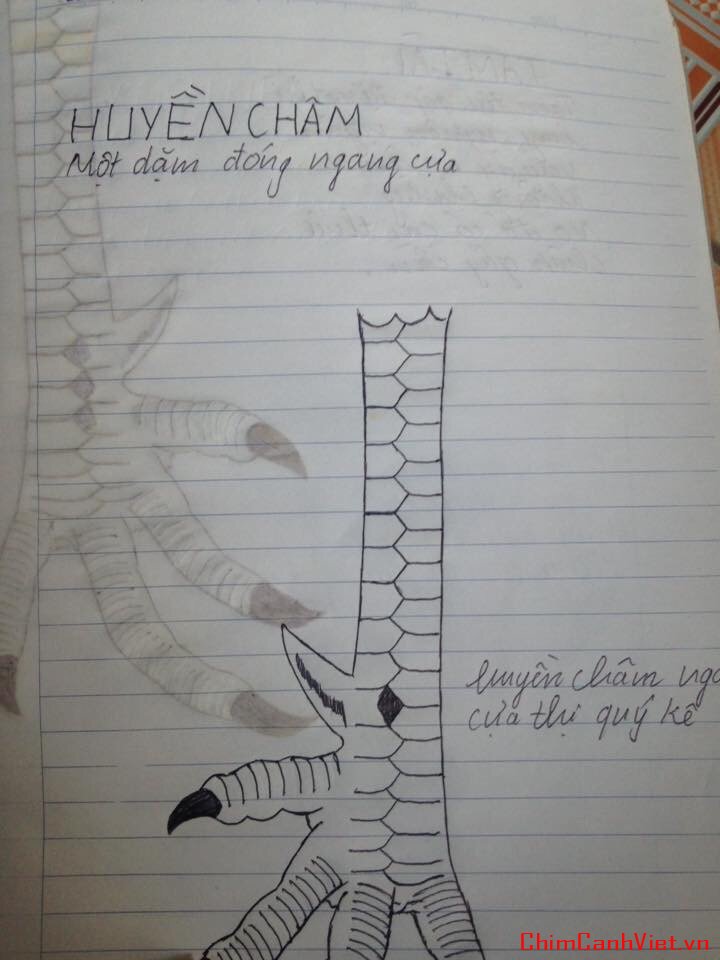 HUYỀN CHÂM
Một dặm đóng ngang cựa
huyền châm nga
cựa thị quý kê
ChimCanhViet.vn